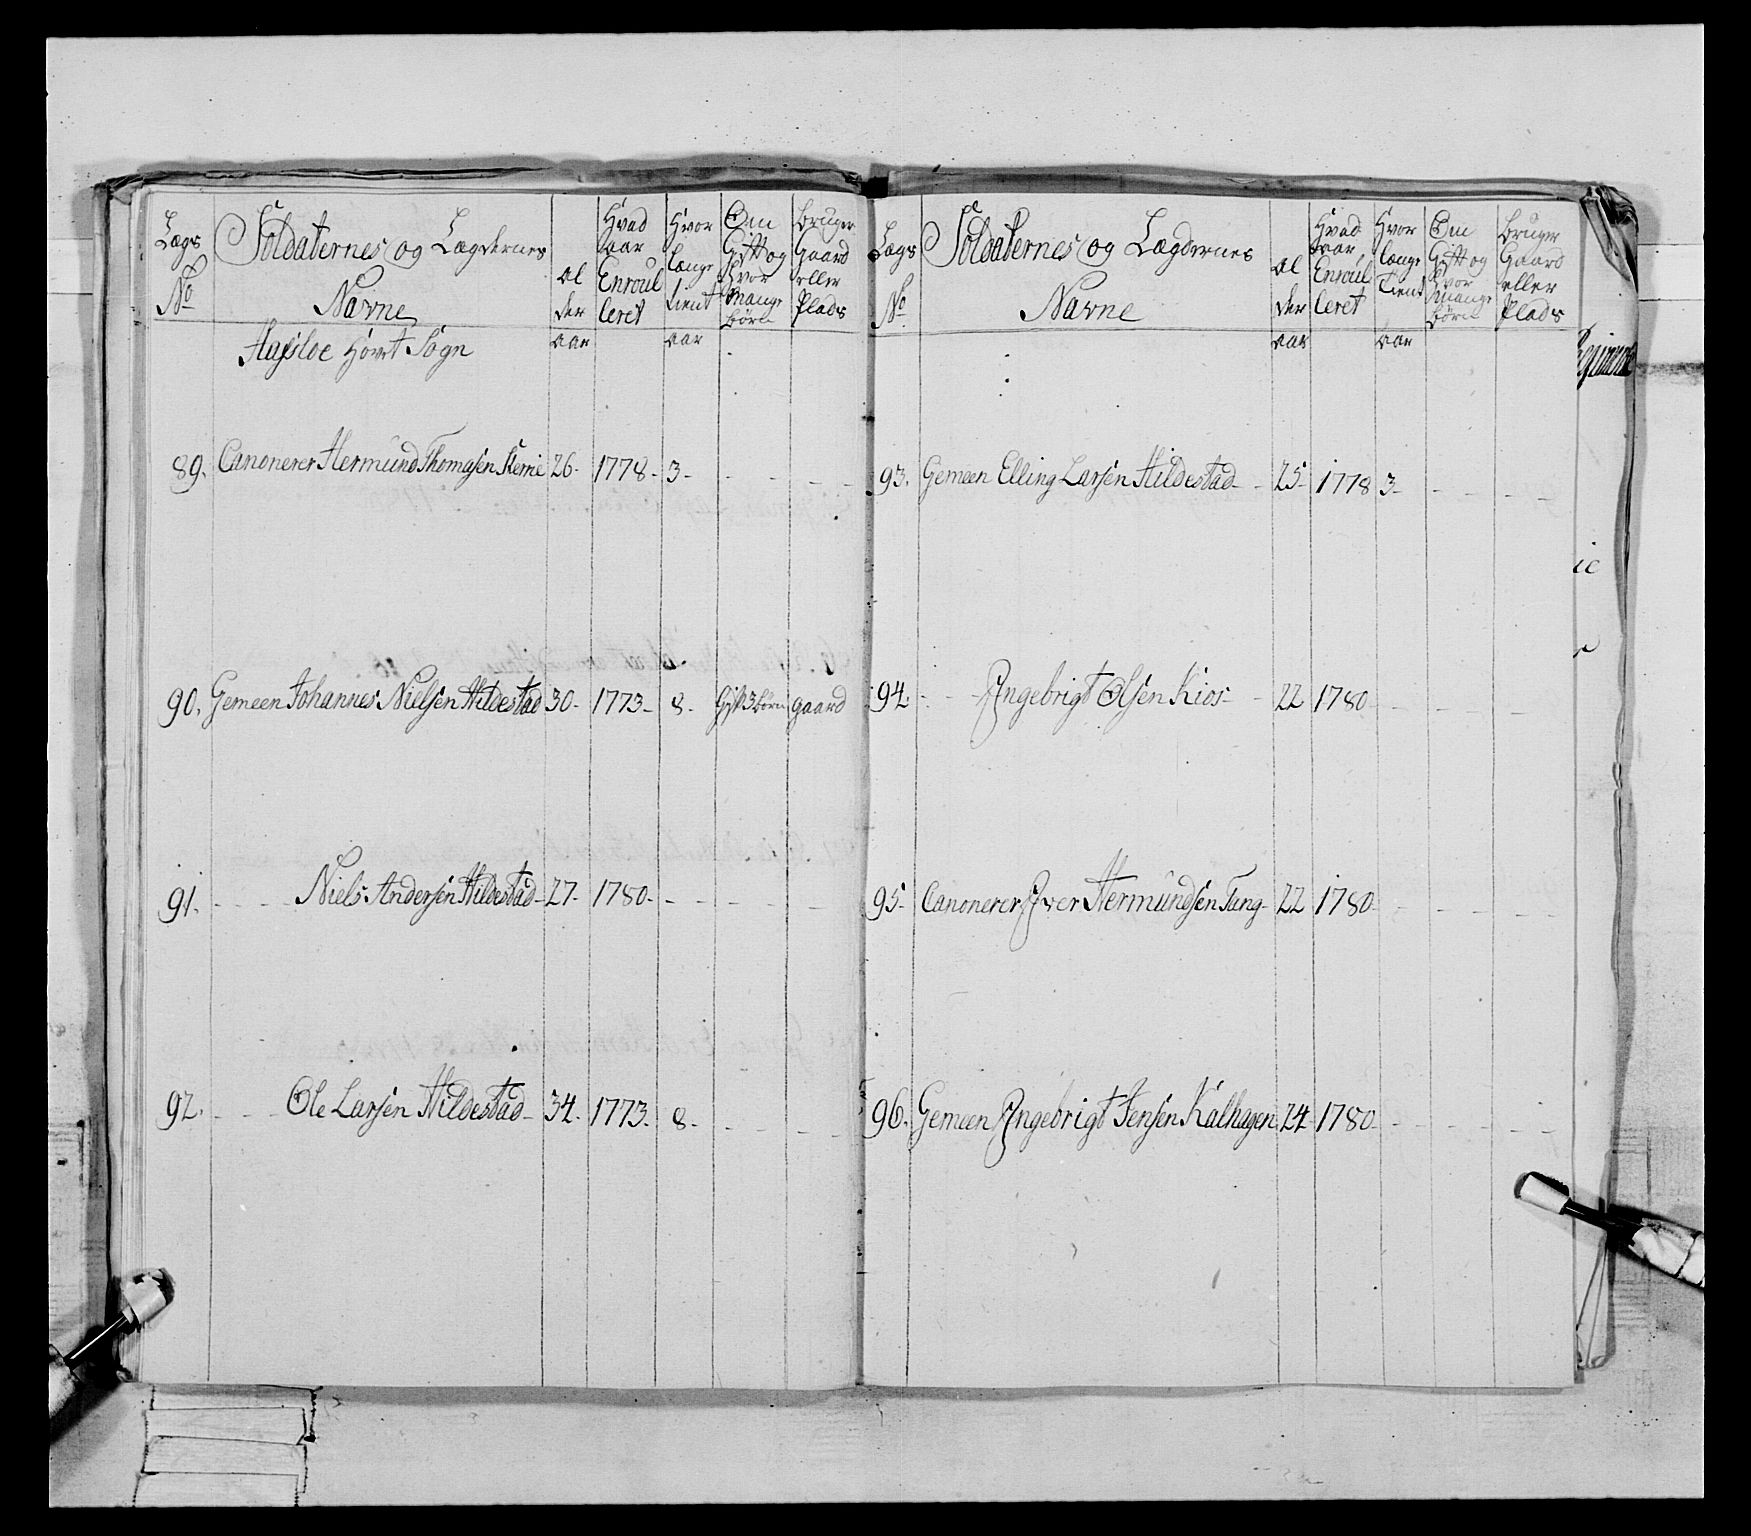 Lægs No
Soldaternes og Lægdernes Navne
Al der
Hvad aar Enroul leret
Hvor længe tient
Om Gift og Hvor Mange börn
bruger Gaard eller Plads
aar
aar
Hafsloe Hovet Sogn
89. Canonerer Hermünd Thomasen Kerrie 26- 1778- 3- - - - -
90. Gemeen Johannes Nielsen Hildestad 30- 1773- 8- Gift 3 börn gaard
91. - - - - Niels Andersen Hildestad- 27- 1780- - - - -
92. - - - Ole Larsen Hildestad- 34- 1773- 8- - - - -
Lægs No
Soldaternes og Lægdernes Navne
Al der
Hvad aar Enroul leret
Hvor længe Tient
Om Gift og Hvor Mange börn
bruger Gaard eller Plads
aar
aar
93. Gemeen Elling Larsen Hildestad- - 25- 1778 3- - - - -
94. - - - Ingebrigt Olsen Kios- - 22 1780- - - - -
95- Canonerer Iver Hermündsen Tang- 22 1780- - - - -
96. Gemeen Ingebrigt Jensen Kalhagen 24 1780- - - - -